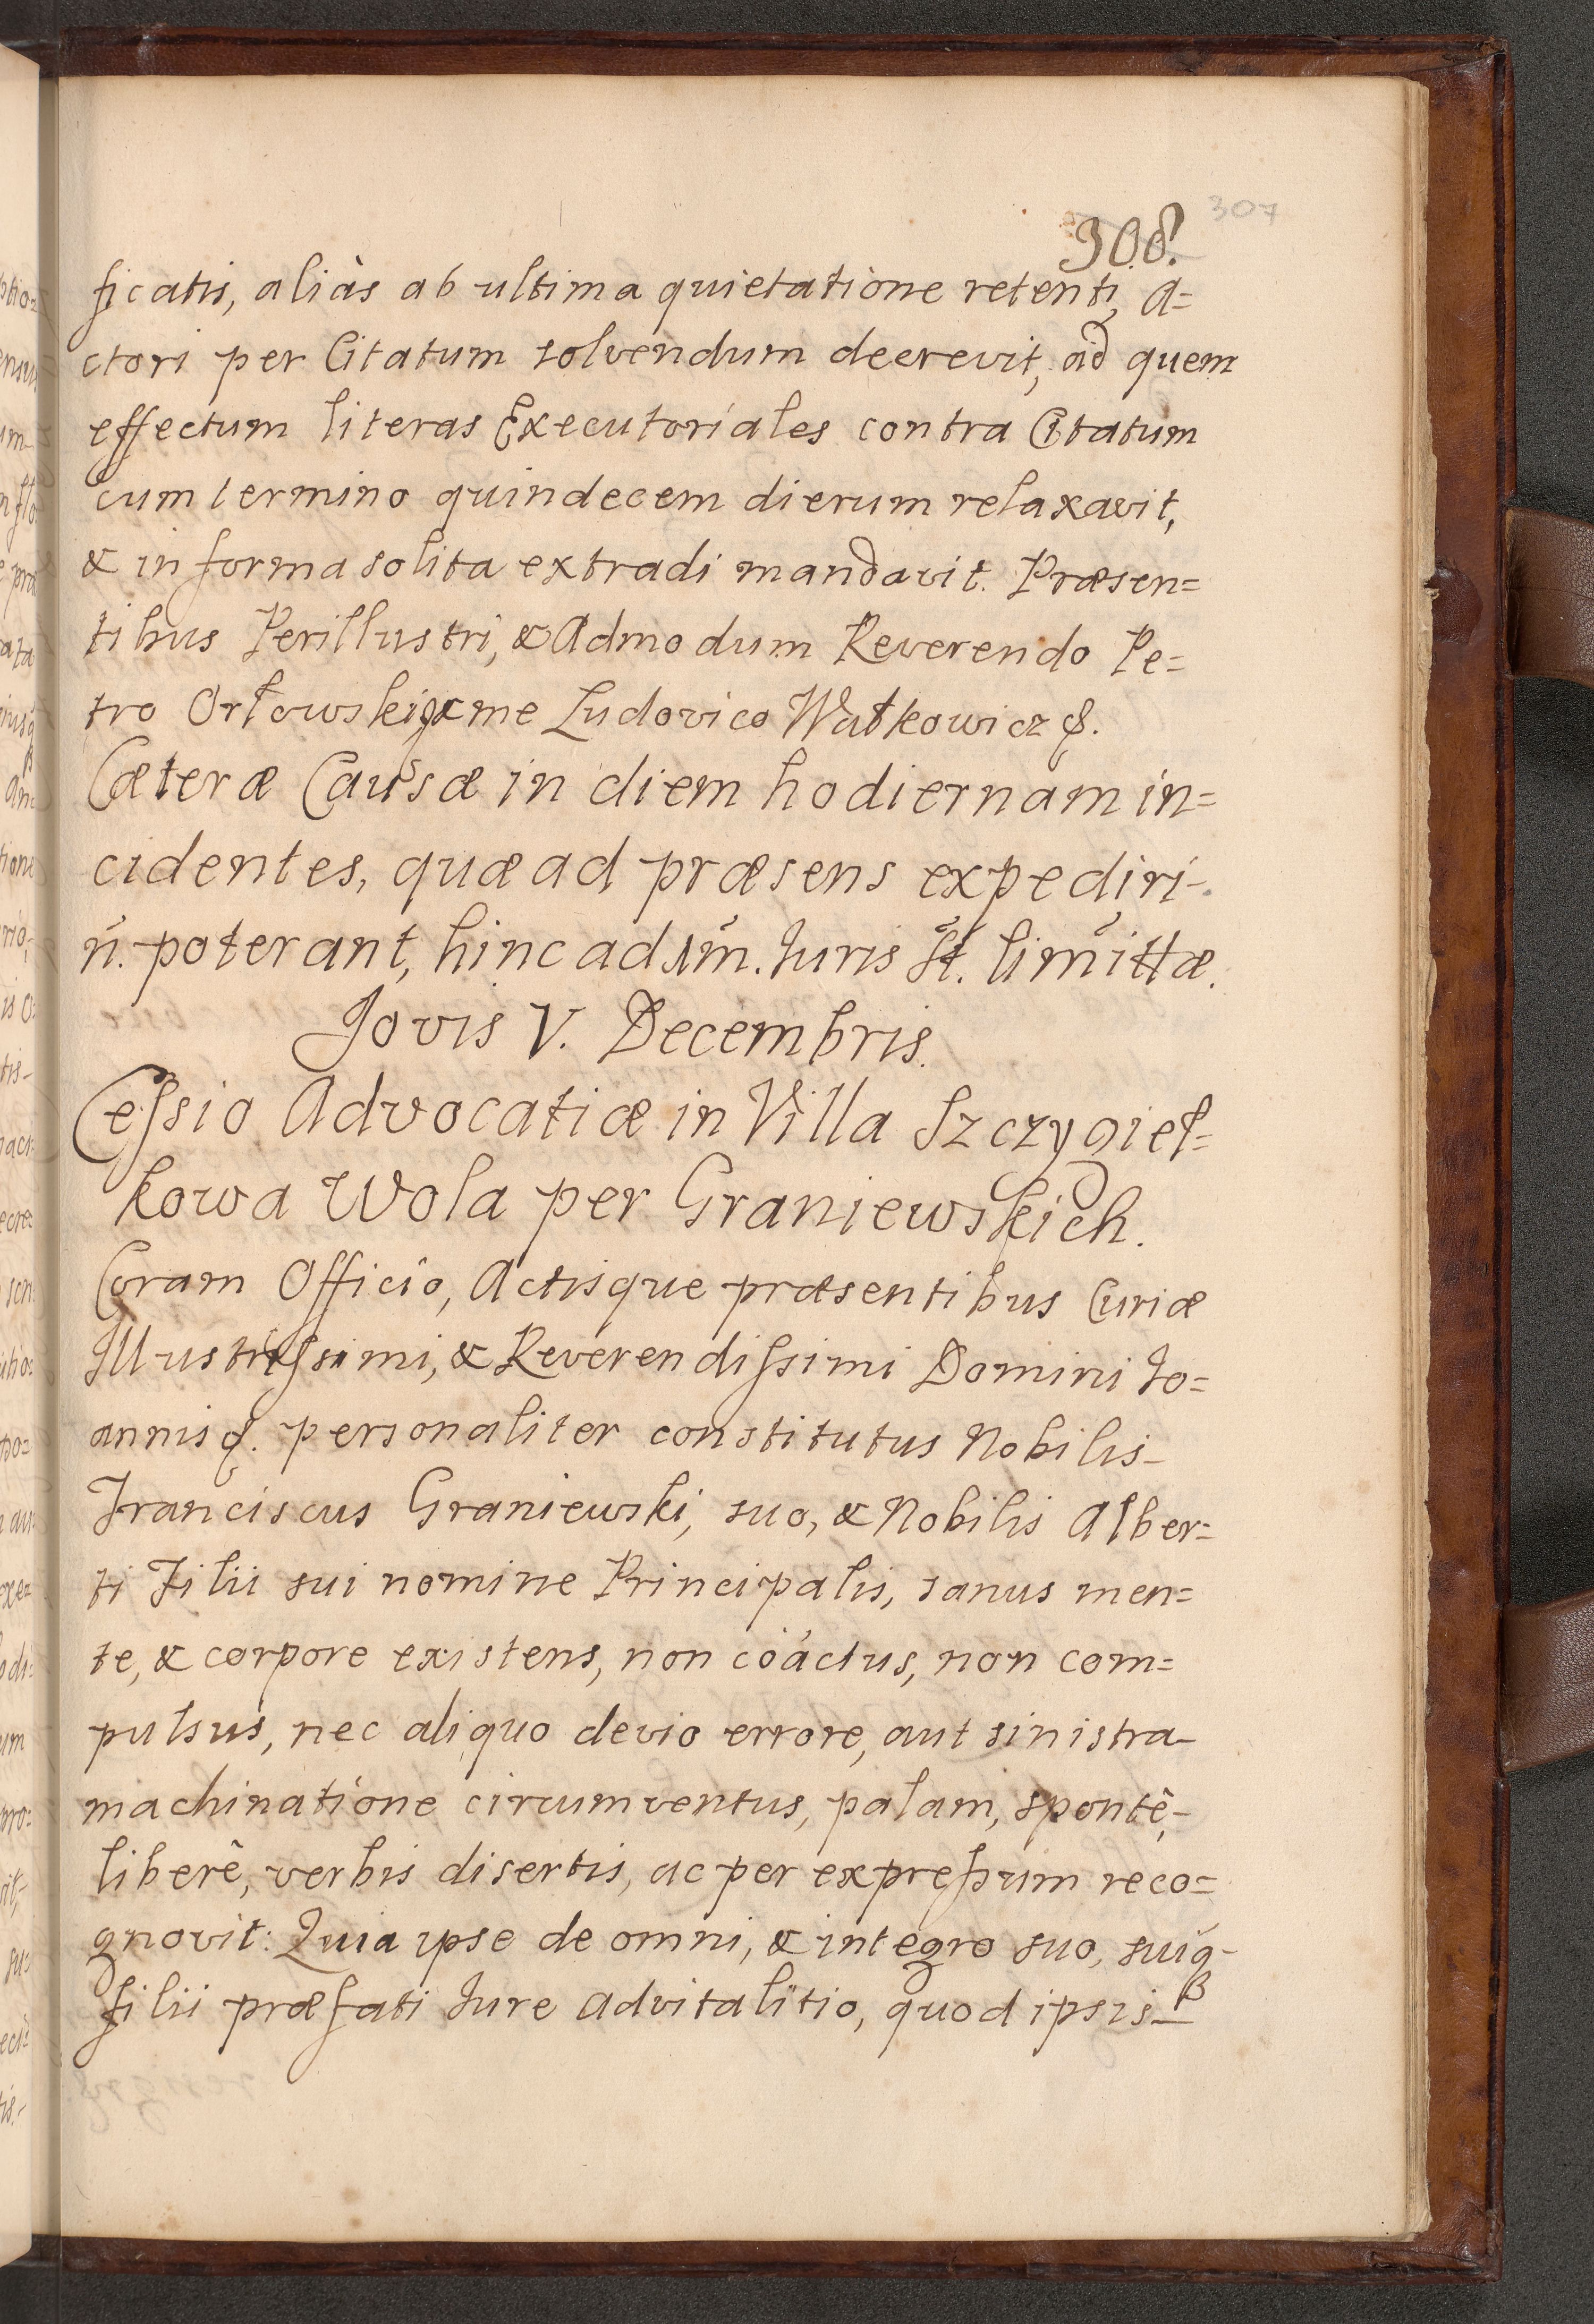 307
308.
ficatis, aliàs ab ultima quietatione retenti, A=
ctori per Citatum solvendum decrevit, ad quem
effectum literas Executoriales contra Citatum
cum termino quindecem dierum relaxavit,
& in forma solita extradi mandavit. Præsen=
tibus Perillustri, & Admodum Reverendo Pe=
tro Orłowski, & me Ludovico Watkowicz &.
Cæteræ Causæ in diem hodiernam in=
cidentes, quæ ad præsens expediri-
ñ. poterant, hinc ad Juris limittæ.
Jovis V. Decembris.
Cessio Advocatiæ in Villa Szczygieł=
kowa Wola per Graniewskich.
Coram Officio, Actisque præsentibus Curiæ
Illustrissimi, & Reverendissimi Domini Jo=
annis &. personaliter constitutus Nobilis-
Franciscus Graniewski, suo, & Nobilis Alber=
ti Filii sui nomine Principalis, sanus men=
te, & corpore existens, non coactus, non com=
pulsus, nec aliquo devio errore, aut sinistra-
machinatione circumventus, palam, spontê,-
liberê, verbis disertis, ac per expressum reco=
gnovit: Quia ipse de omni, & integro suo, suiq-
filii præfati Jure advitalitio, quod ipsis-